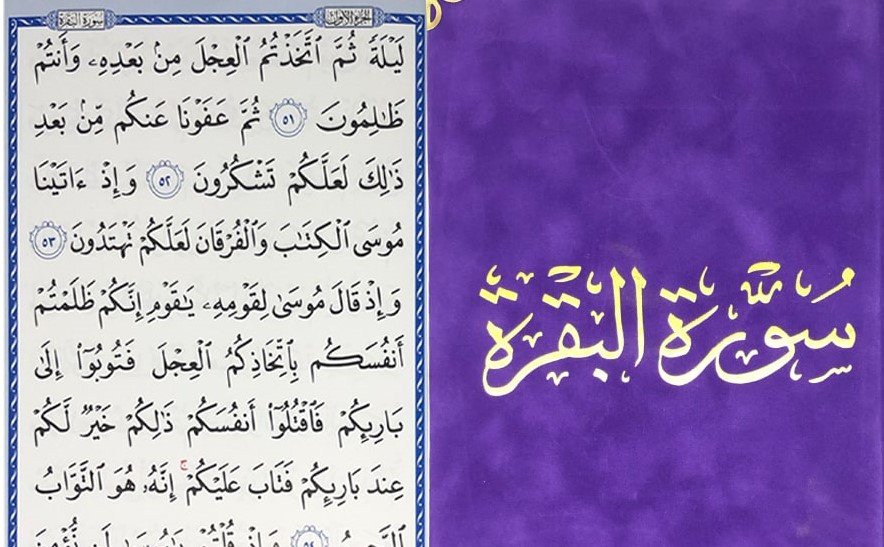 سورة البقرة
الجزء الأول
لَيْلَةً ثُمَّ ٱتَّخَذْتُمُ ٱلْعِجْلَ مِنۢ بَعْدِهِۦ وَأَنتُمْ
ظَٰلِمُونَ ٥١ ثُمَّ عَفَوْنَا عَنكُم مِّنۢ بَعْدِ
ذَٰلِكَ لَعَلَّكُمْ تَشْكُرُونَ ٥٢ وَإِذْ ءَاتَيْنَا
مُوسَى ٱلْكِتَٰبَ وَٱلْفُرْقَانَ لَعَلَّكُمْ تَهْتَدُونَ ٥٣
وَإِذْ قَالَ مُوسَىٰ لِقَوْمِهِۦ يَٰقَوْمِ إِنَّكُمْ ظَلَمْتُمْ
أَنفُسَكُم بِٱتِّخَاذِكُمُ ٱلْعِجْلَ فَتُوبُوٓا۟ إِلَىٰ
بَارِئِكُمْ فَٱقْتُلُوٓا۟ أَنفُسَكُمْ ذَٰلِكُمْ خَيْرٌ لَّكُمْ
عِندَ بَارِئِكُمْ فَتَابَ عَلَيْكُمْ ۚ إِنَّهُۥ هُوَ ٱلتَّوَّابُ
ٱلرَّحِيمُ ٥٤ وَإِذْ قُلْتُمْ يَٰمُوسَىٰ لَن نُّؤْمِنَ
سُورَةُ الْبَقَرَةِ